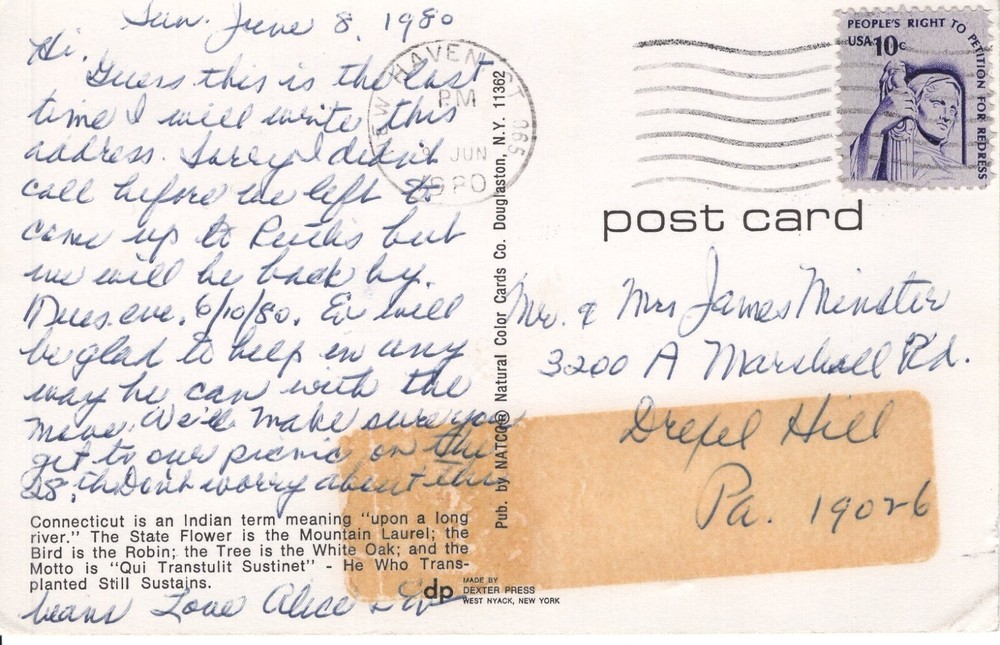 Sun. June 8, 1980
Hi,
Guess this is the last
time I will write this
address. Sorry I didn't
call before we left to
come up to Ruth's but
we will be back by
Tues. eve. 6/10/80. Ev will
be glad to help in any
way he can with the
move. We'll make sure you
get to our picnic on the
28th. Don't worry about the
Connecticut is an Indian term meaning "upon a long
river." The State Flower is the Mountain Laurel; the
Bird is the Robin; the Tree is the White Oak; and the
Motto is "Qui Transtulit Sustinet" - He Who Trans-
planted Still Sustains.
beans Love Alice & Ev
NEW HAVEN CT 065
PM
9 JUN
1980
Pub. by NATCO® Natural Color Cards Co. Douglaston, N.Y. 11362
PEOPLE'S RIGHT TO PETITION FOR REDRESS
USA 10c
post card
Mr. & Mrs James Minster
3200 A Marshall Rd.
Drexel Hill
Pa. 19026
dp
MADE BY
DEXTER PRESS
WEST NYACK, NEW YORK